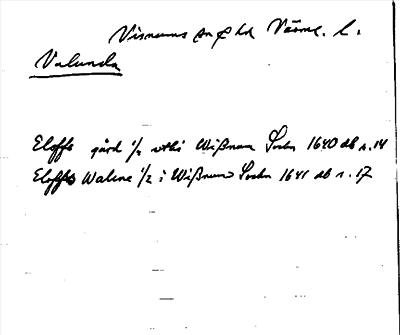 Visnums sn o hd Värml. l.
Valunda
Eloffs gård 1/2 vthi Wißnum Sochn 1640 db s. 14
Eloffs Walune 1/2 i Wißnum Sochn 1641 db s. 17